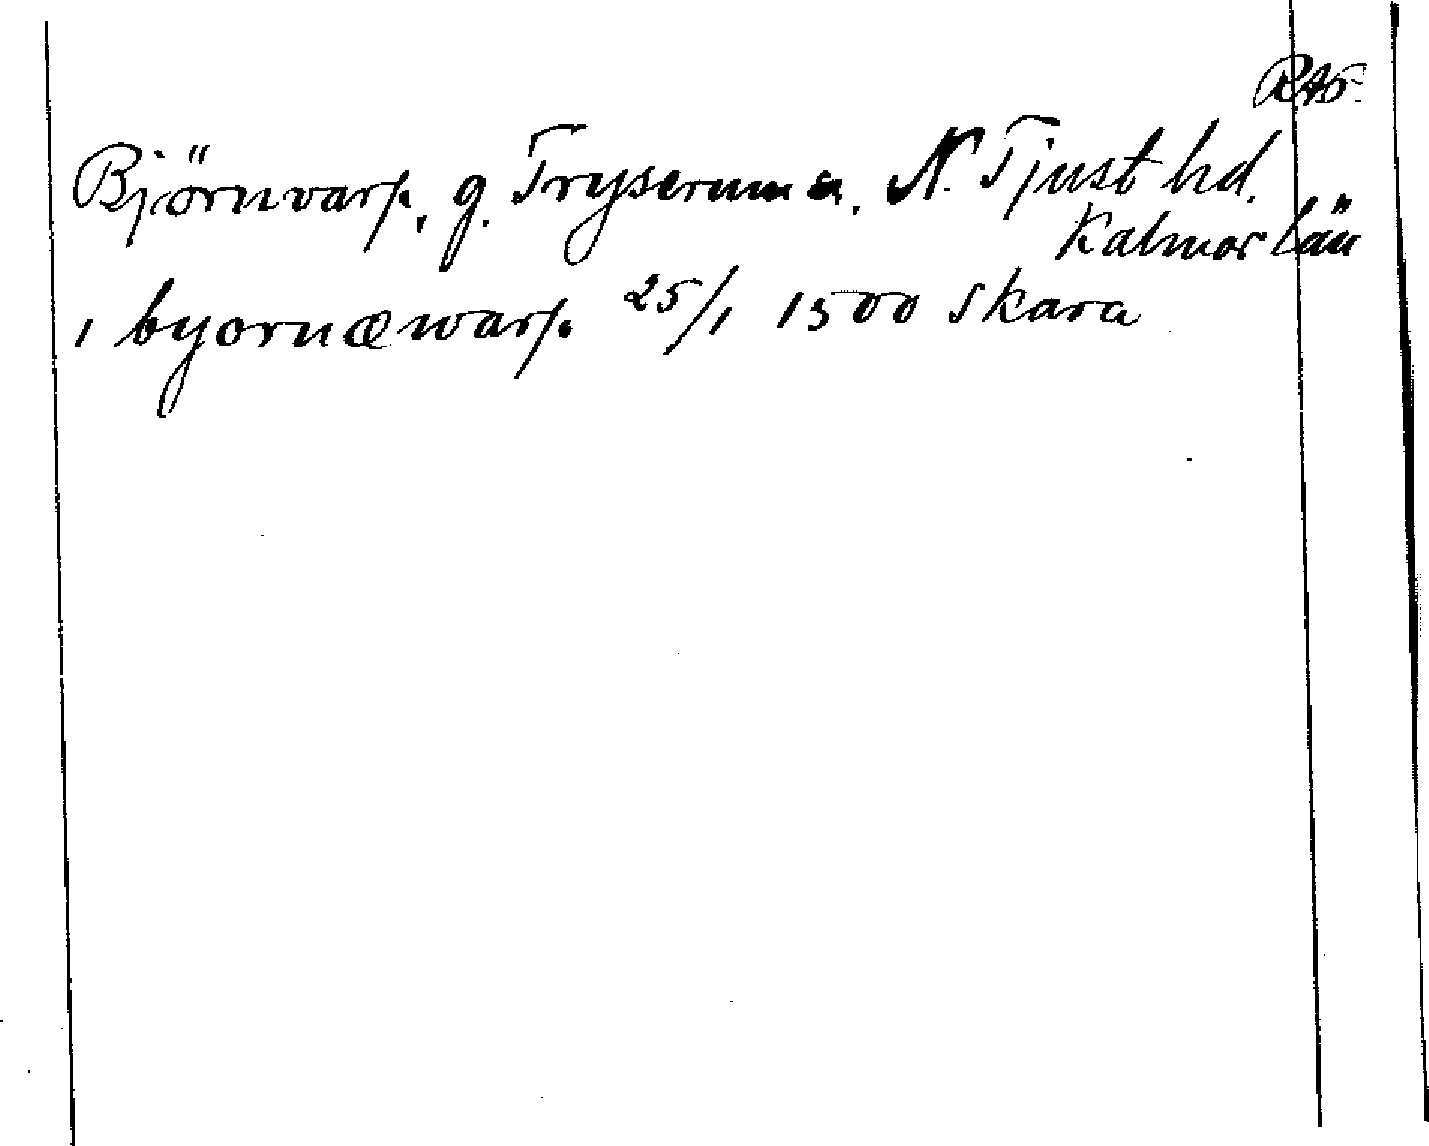 RAp.
Björnvarp, g. Tryserums sn. N. Tjust hd.
Kalmar län
i byornæwarp 25/1 1500 skara